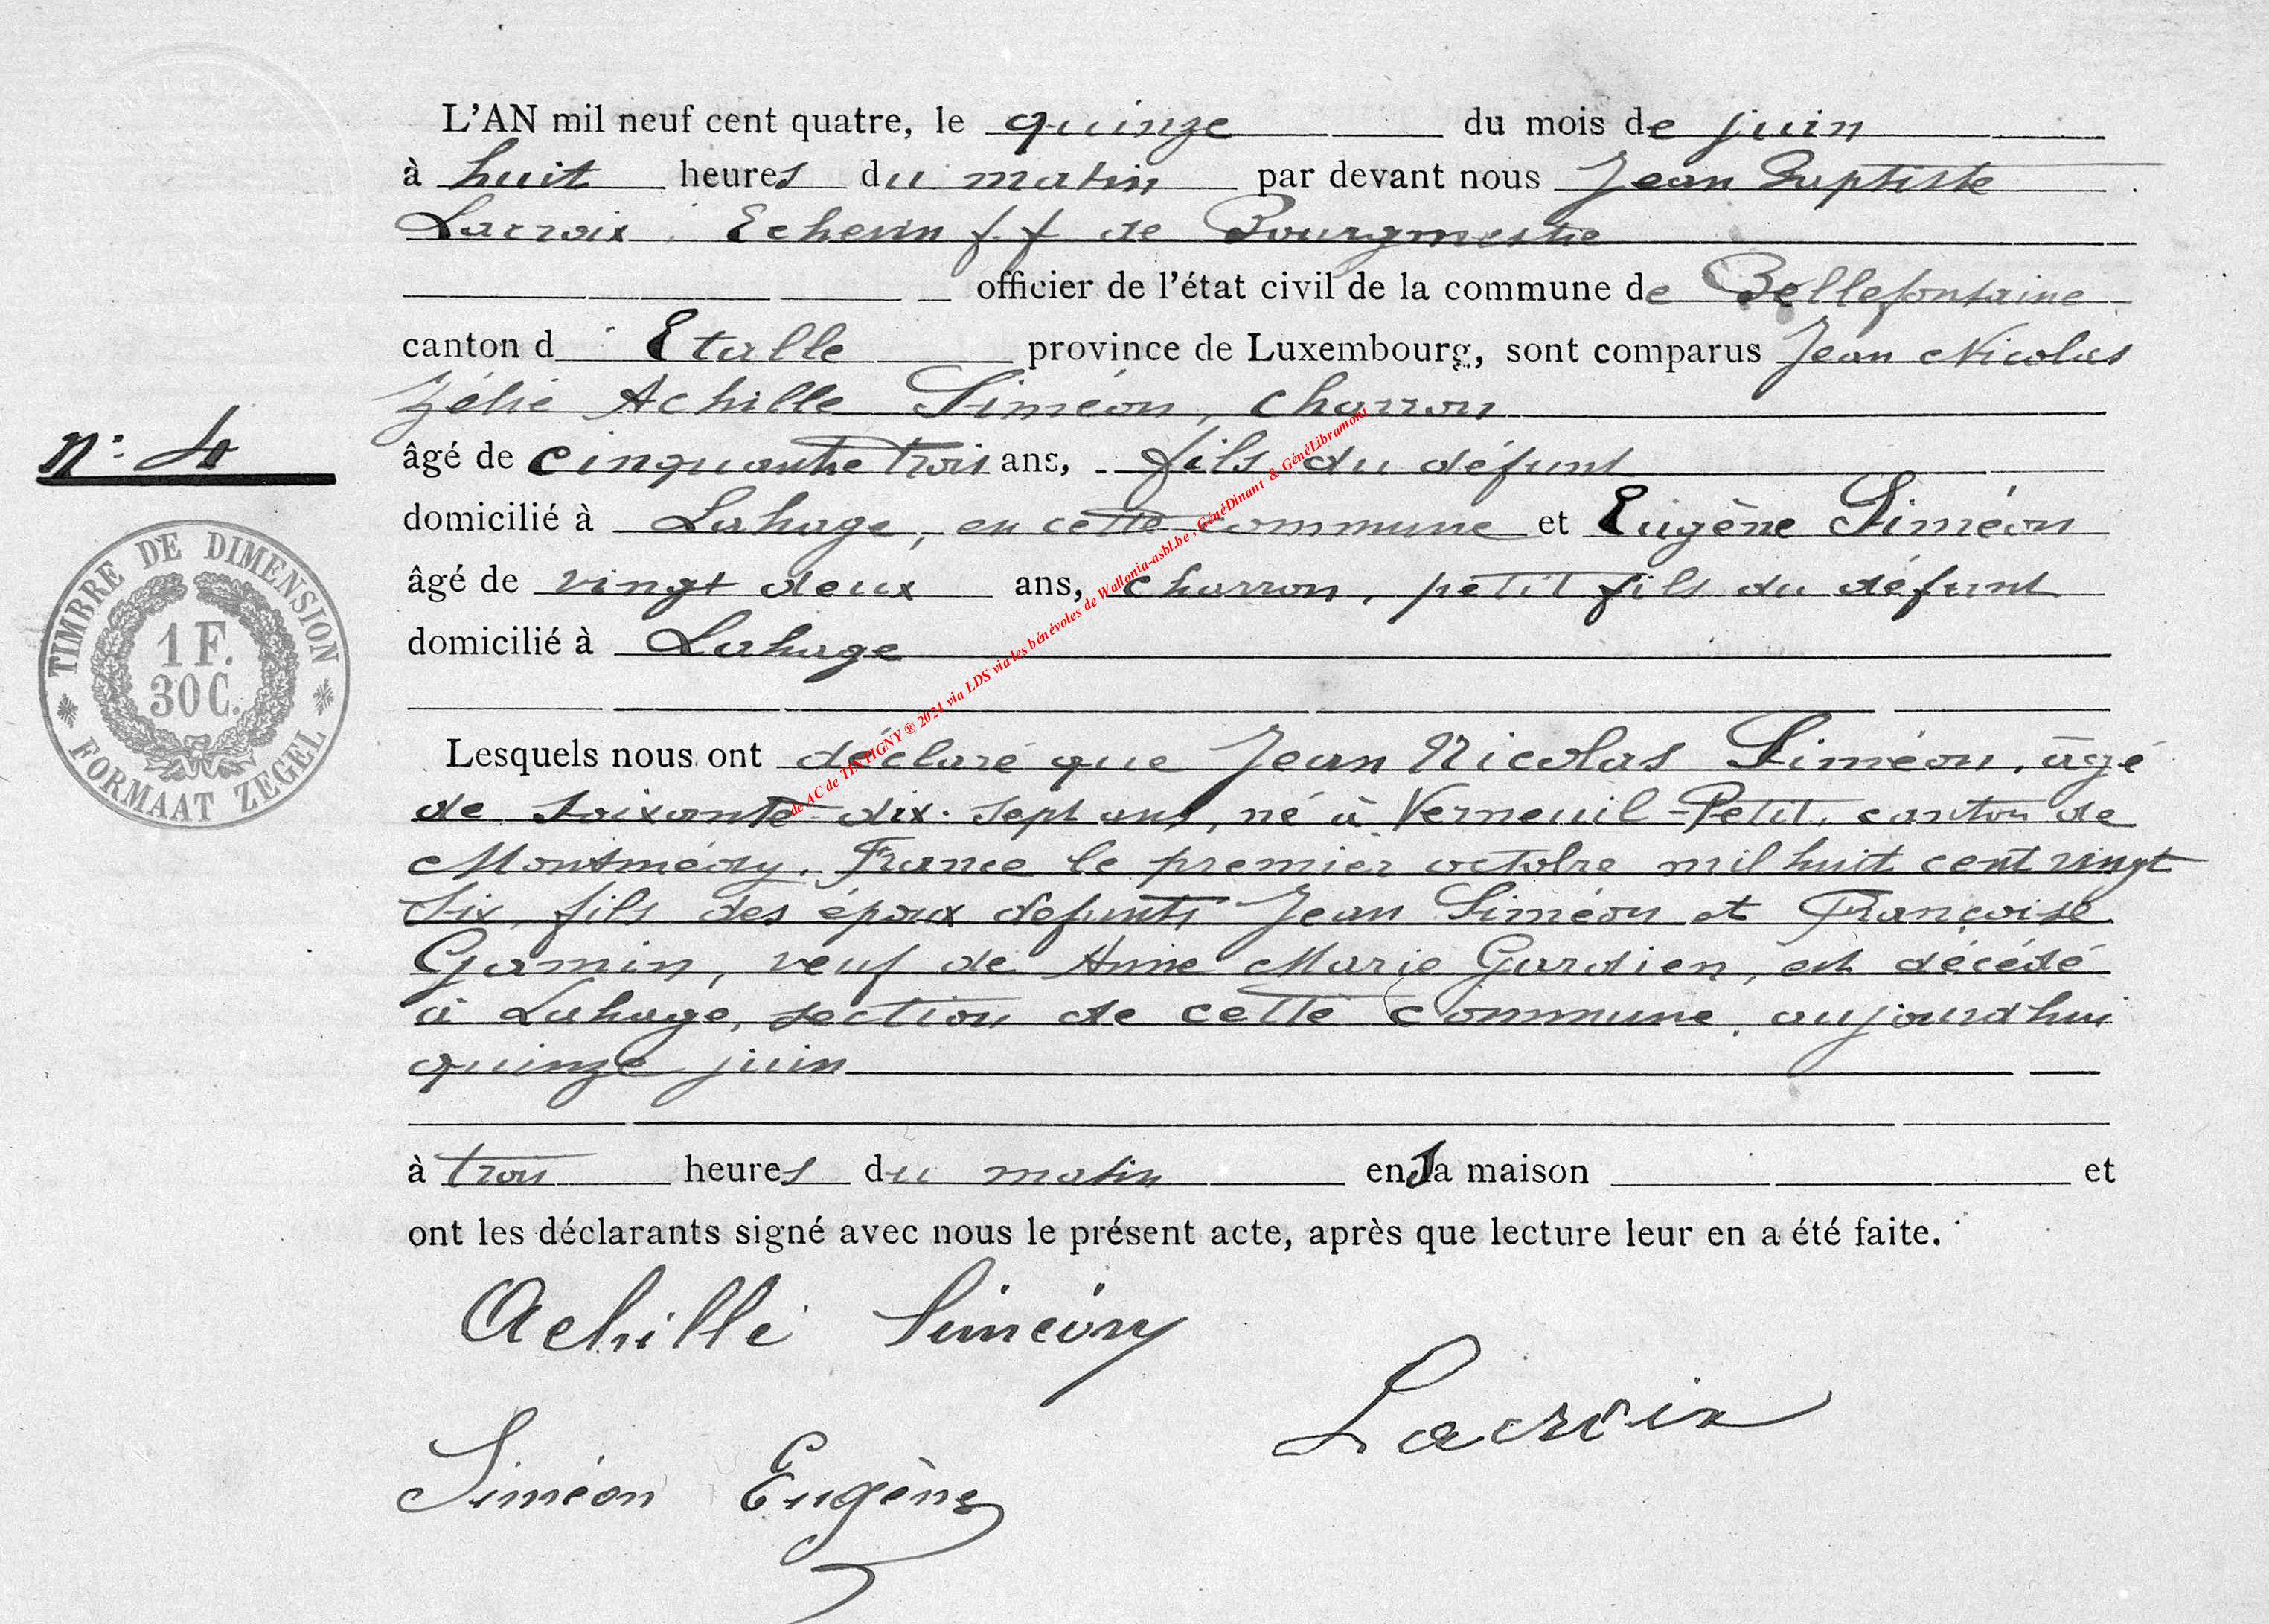 L'AN mil neuf cent quatre, le quinze du mois de juin
à huit heures du matin par devant nous Jean Baptiste
Lacroix, Echevin f.f de Bourgmestre
officier de l'état civil de la commune de Bellefontaine
canton d Etalle province de Luxembourg, sont comparus Jean Nicolas
Zélié Achille Siméon, charron
n: 4
âgé de cinquante trois ans, fils du défunt
domicilié à Lahage, en cette commune et Eugène Siméon
âgé de vingt deux ans, charron, petit fils du défunt
domicilié à Lahage
TIMBRE DE DIMENSION
1 F.
30 C.
FORMAAT ZEGEL
Lesquels nous ont déclaré que Jean Nicolas Siméon, âgé
de soixante-dix-sept ans, né à Verneuil-Petit, canton de
Montmédy, France le premier octobre mil huit cent vingt
six, fils des époux défunts Jean Siméon et Françoise
Gamin, veuf de Anne Marie Gardien, est décédé
à Lahage, section de cette commune, aujourd'hui
quinze juin
à trois heures du matin en sa maison et
ont les déclarants signé avec nous le présent acte, après que lecture leur en a été faite.
Achille Siméon
Lacroix
Siméon Eugène
de AC de TINTIGNY ® 2024 via LDS via les bénévoles de Wallonia-asbl.be , GénéDinant & GénéLibramont